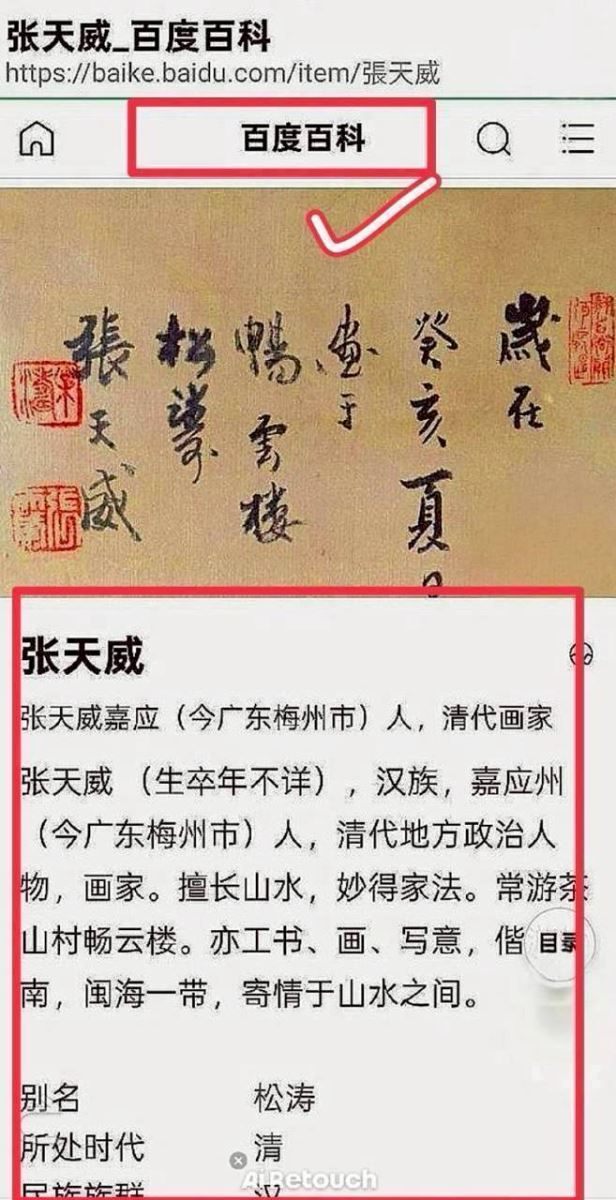 张天威_百度百科
https://baike.baidu.com/item/張天威
百度百科
歲在
癸亥夏日
畫于
暢雲楼
松濤
張天威
张天威
张天威嘉应（今广东梅州市）人，清代画家
张天威 （生卒年不详），汉族，嘉应州
（今广东梅州市）人，清代地方政治人
物，画家。擅长山水，妙得家法。常游茶
山村畅云楼。亦工书、画、写意，偕
南，闽海一带，寄情于山水之间。
目录
别名 松涛
所处时代 清
民族族群 汉
AiRetouch